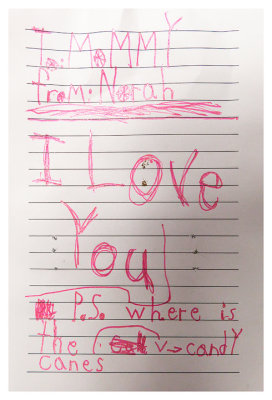 To: MOMMY
from: Norah
I Love
You
P.S. where is
the candy
canes